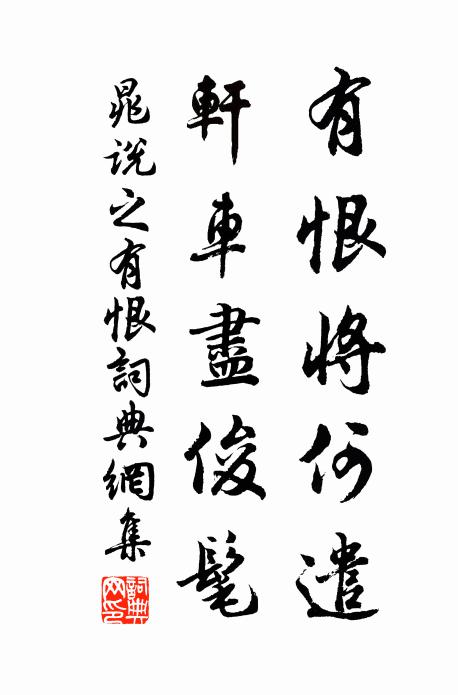 有恨將何遣
軒車盡俊髦
晁說之有恨詞典網集